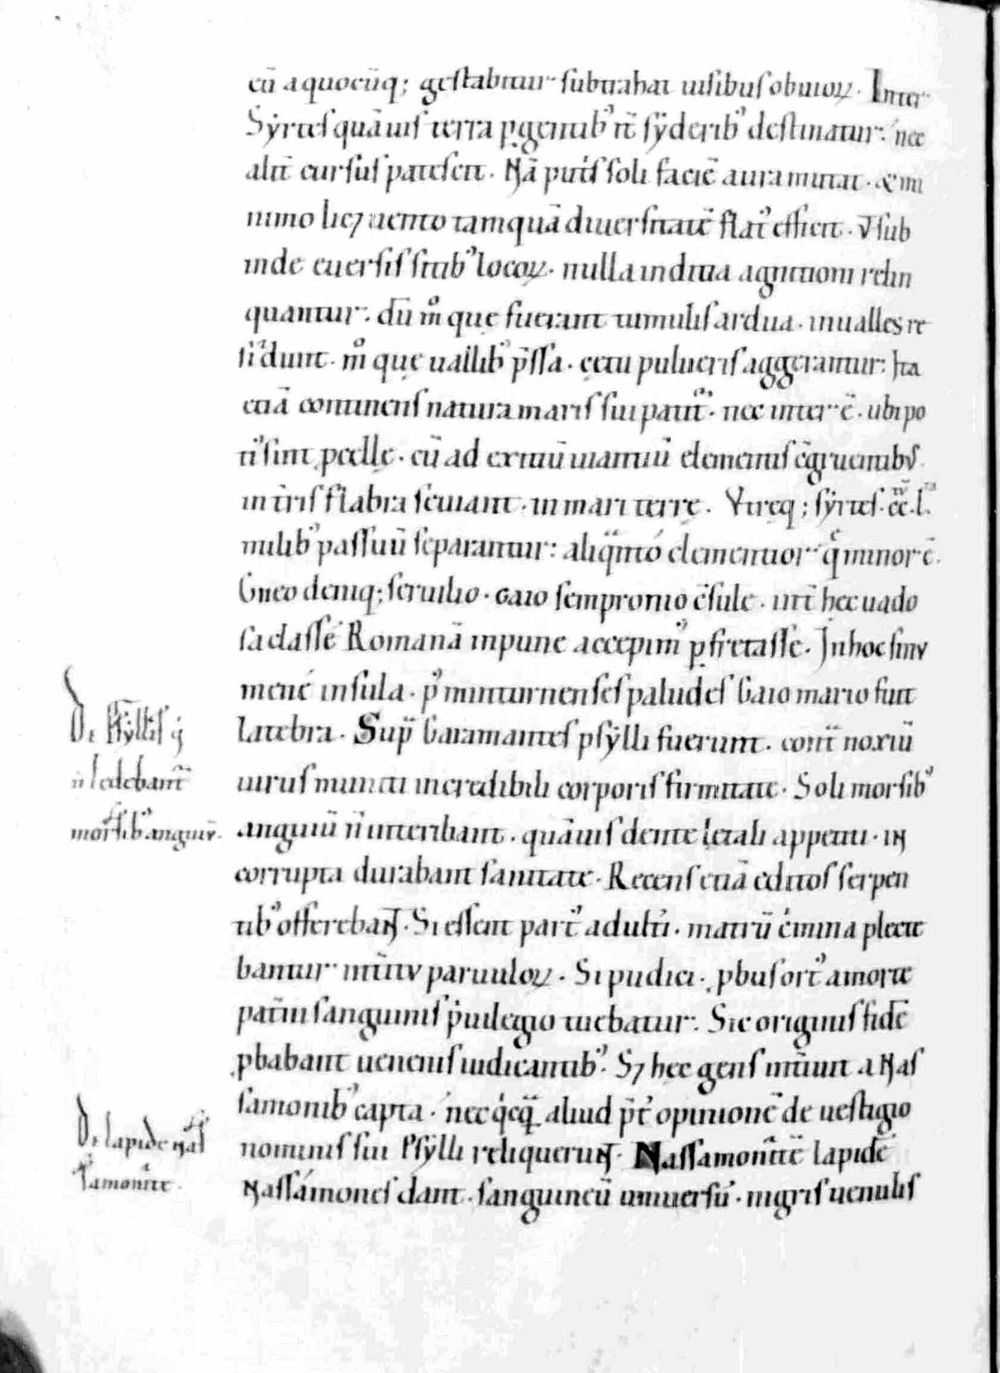 cū a quocūq; gestabitur subtrahat uisibus obuioꝝ. Inter
Sẏrtes quāuis terra ꝑgentib᾿ itī sẏderib᾿ destinatur: nec
alit̄ cursus patescit. Nā putris soli faciē aura mutat. & mi
nimo licꝫ uento tamquā diuersitatē flat᾿ efficit. ū sub
inde euersis sitib᾿ locoꝝ. nulla indicia agnitioni relin
quantur. dū m̊ que fuerant tumulis ardua. in ualles re
sidunt. m̊ quę uallib᾿ p̄ssa. cętu pulueris aggerantur: Ita
etiā continens natura maris sui patit᾿. nec inter ē. ubi po
ti᾿ sint ꝓcelle. cū ad exitiū uiantiū elementis c̄gruentibus
in t̄ris flabra seuiant. in mari terrę. Vtręq; sẏrtes. cc.l.
milib᾿ passuū separantur: aliqͣntó clementior q̄ minor ē.
Gneo deniq; seruilio. Gaio sempronio c̄sule. int̄ hec uado
sa classē Romanā inpune accepim᾿ ꝑfretasse. In hoc sinu
mene insula. p᾿ minturnenses paludes Gaio mario fuit
De Psẏllis q̇
latebra. Supͣ Garamantes psẏlli fuerunt. contͣ noxiū
n̄ ledebant᾿
uirus muniti incredibili corporis firmitate. Soli morsib᾿
morsib᾿ anguiū.
anguiū n̄ interibant. quāuis dente letali appetiti. in
corrupta durabant sanitate. Recens etiā editos serpen
tib᾿ offerebant. Si essent part᾿ adulti. matrū c̓mina plecte
bantur int̄itu paruuloꝝ. Si pudici. ꝓbus ort᾿ a morte
pat̄ni sanguinis p̓uilegio tuebatur. Sic originis fidē
ꝓbabant uenenis iudicantib᾿. Sꝫ hęc gens int̄iuit a Nas
samonib᾿ capta. nec q̇cqͣ aliud p̄t᾿ opinionē de uestigio
De lapide nas
nominis sui Psẏlli reliquerunt. Nassamonitē lapidē
samonite.
Nassamones dant. sanguineū uniuersū. nigris uenulis